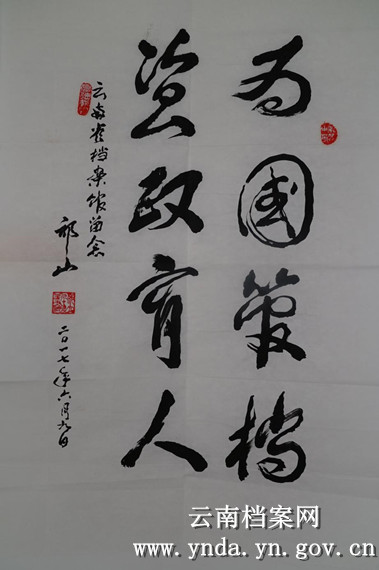 为国管档
资政育人
云南省档案馆留念
祁山
二〇一七年六月九日
云南档案网
www.ynda.yn.gov.cn